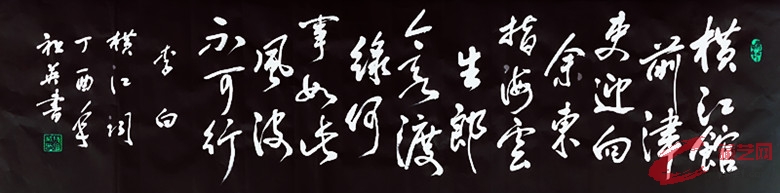 横江館
前津
吏迎向
余東
指海雲
生郎
今欲渡
緣何
事如此
風波
不可行
李白
横江词
丁酉年
祖英書